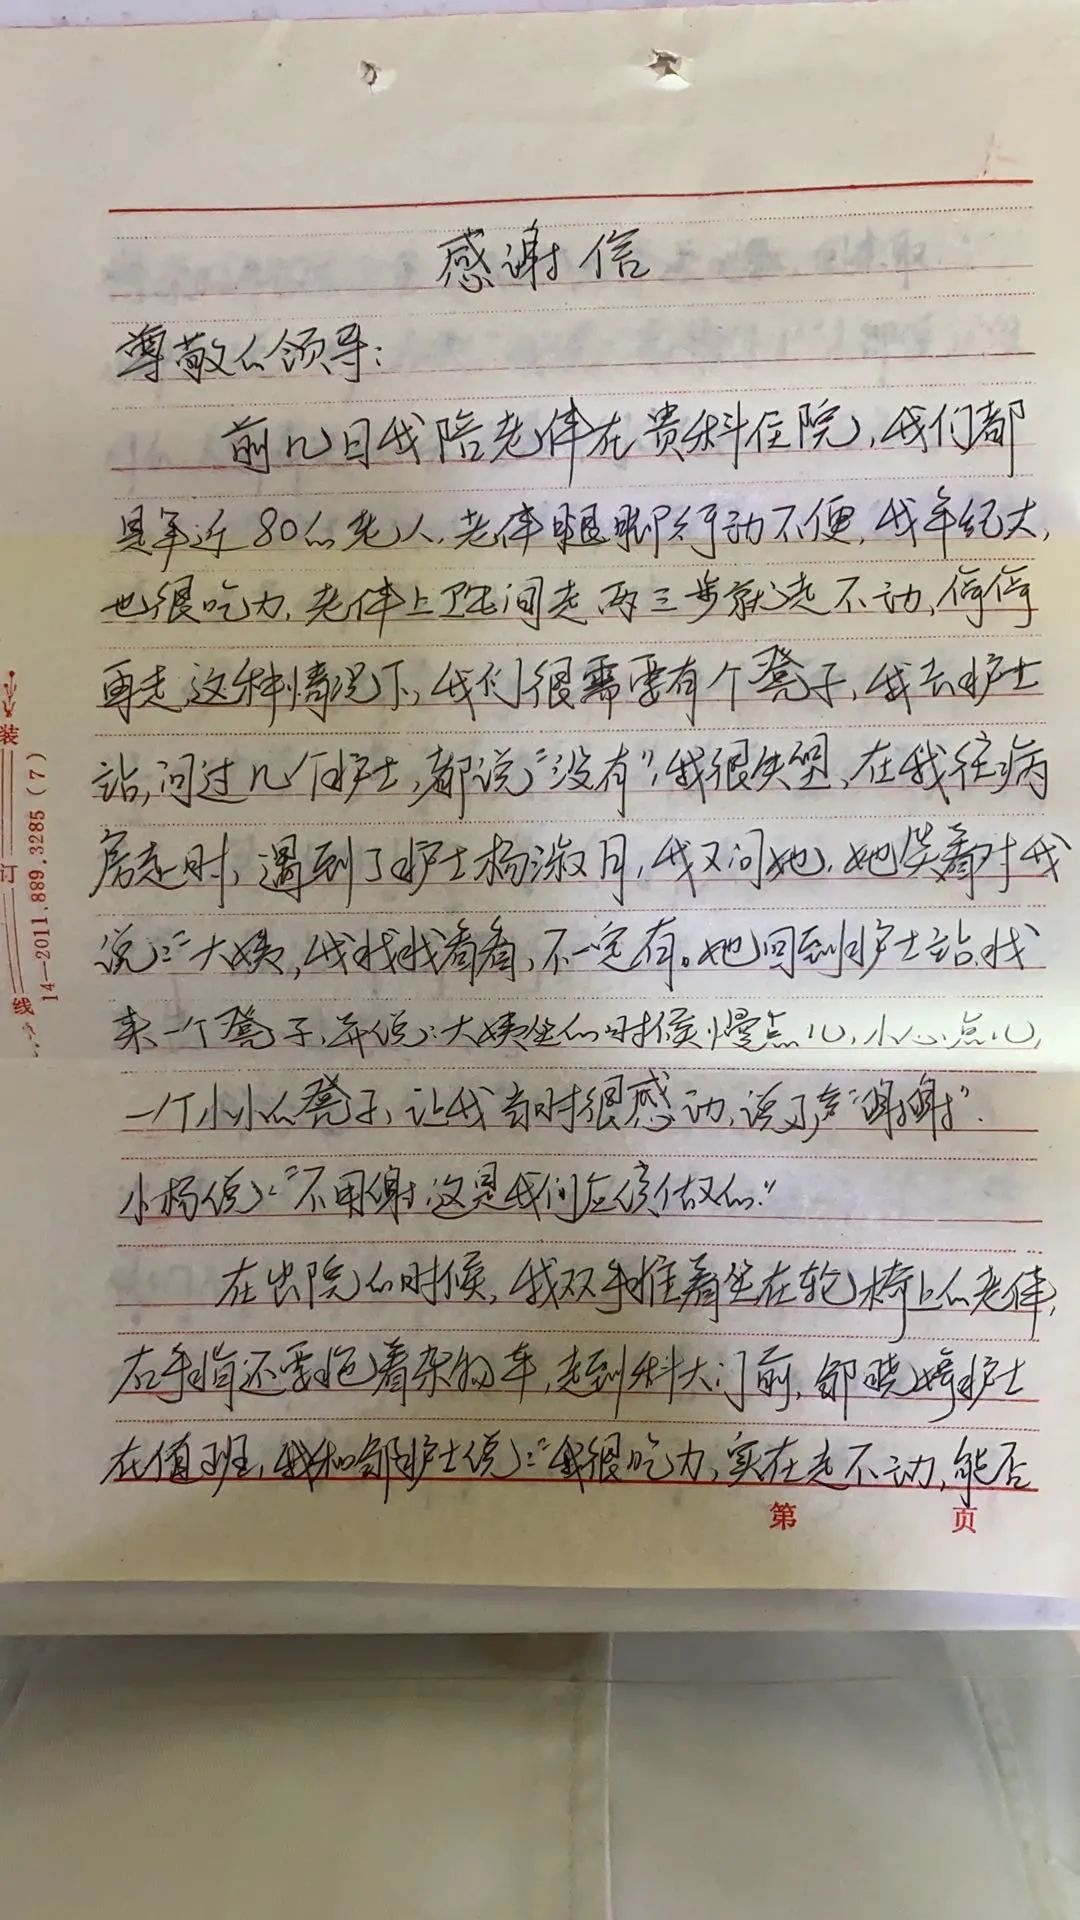 感谢信
尊敬的领导：
前几日我陪老伴在贵科住院，我们都
是年近80的老人，老伴腿脚行动不便，我年纪大，
也很吃力，老伴上卫生间走两三步就走不动，停停
再走，这种情况下，我们很需要有个凳子，我去护士
站，问过几个护士，都说"没有"，我很失望，在我往病
房走时，遇到了护士杨淑月，我又问她，她笑着对我
说："大姨，我找找看看，不一定有。她回到护士站找
来一个凳子，并说：大姨坐的时候慢点儿，小心点儿，
一个小小的凳子，让我当时很感动，说了声"谢谢"．
小杨说："不用谢这是我们应该做的."
在出院的时候，我双手推着坐在轮椅上的老伴，
右手指还要拖着杂物车，走到科大门前，邹晓婷护士
在值班，我和邹护士说："我很吃力，实在走不动，能否
第 页
装 订 线
14—2011.889.3285 (7)